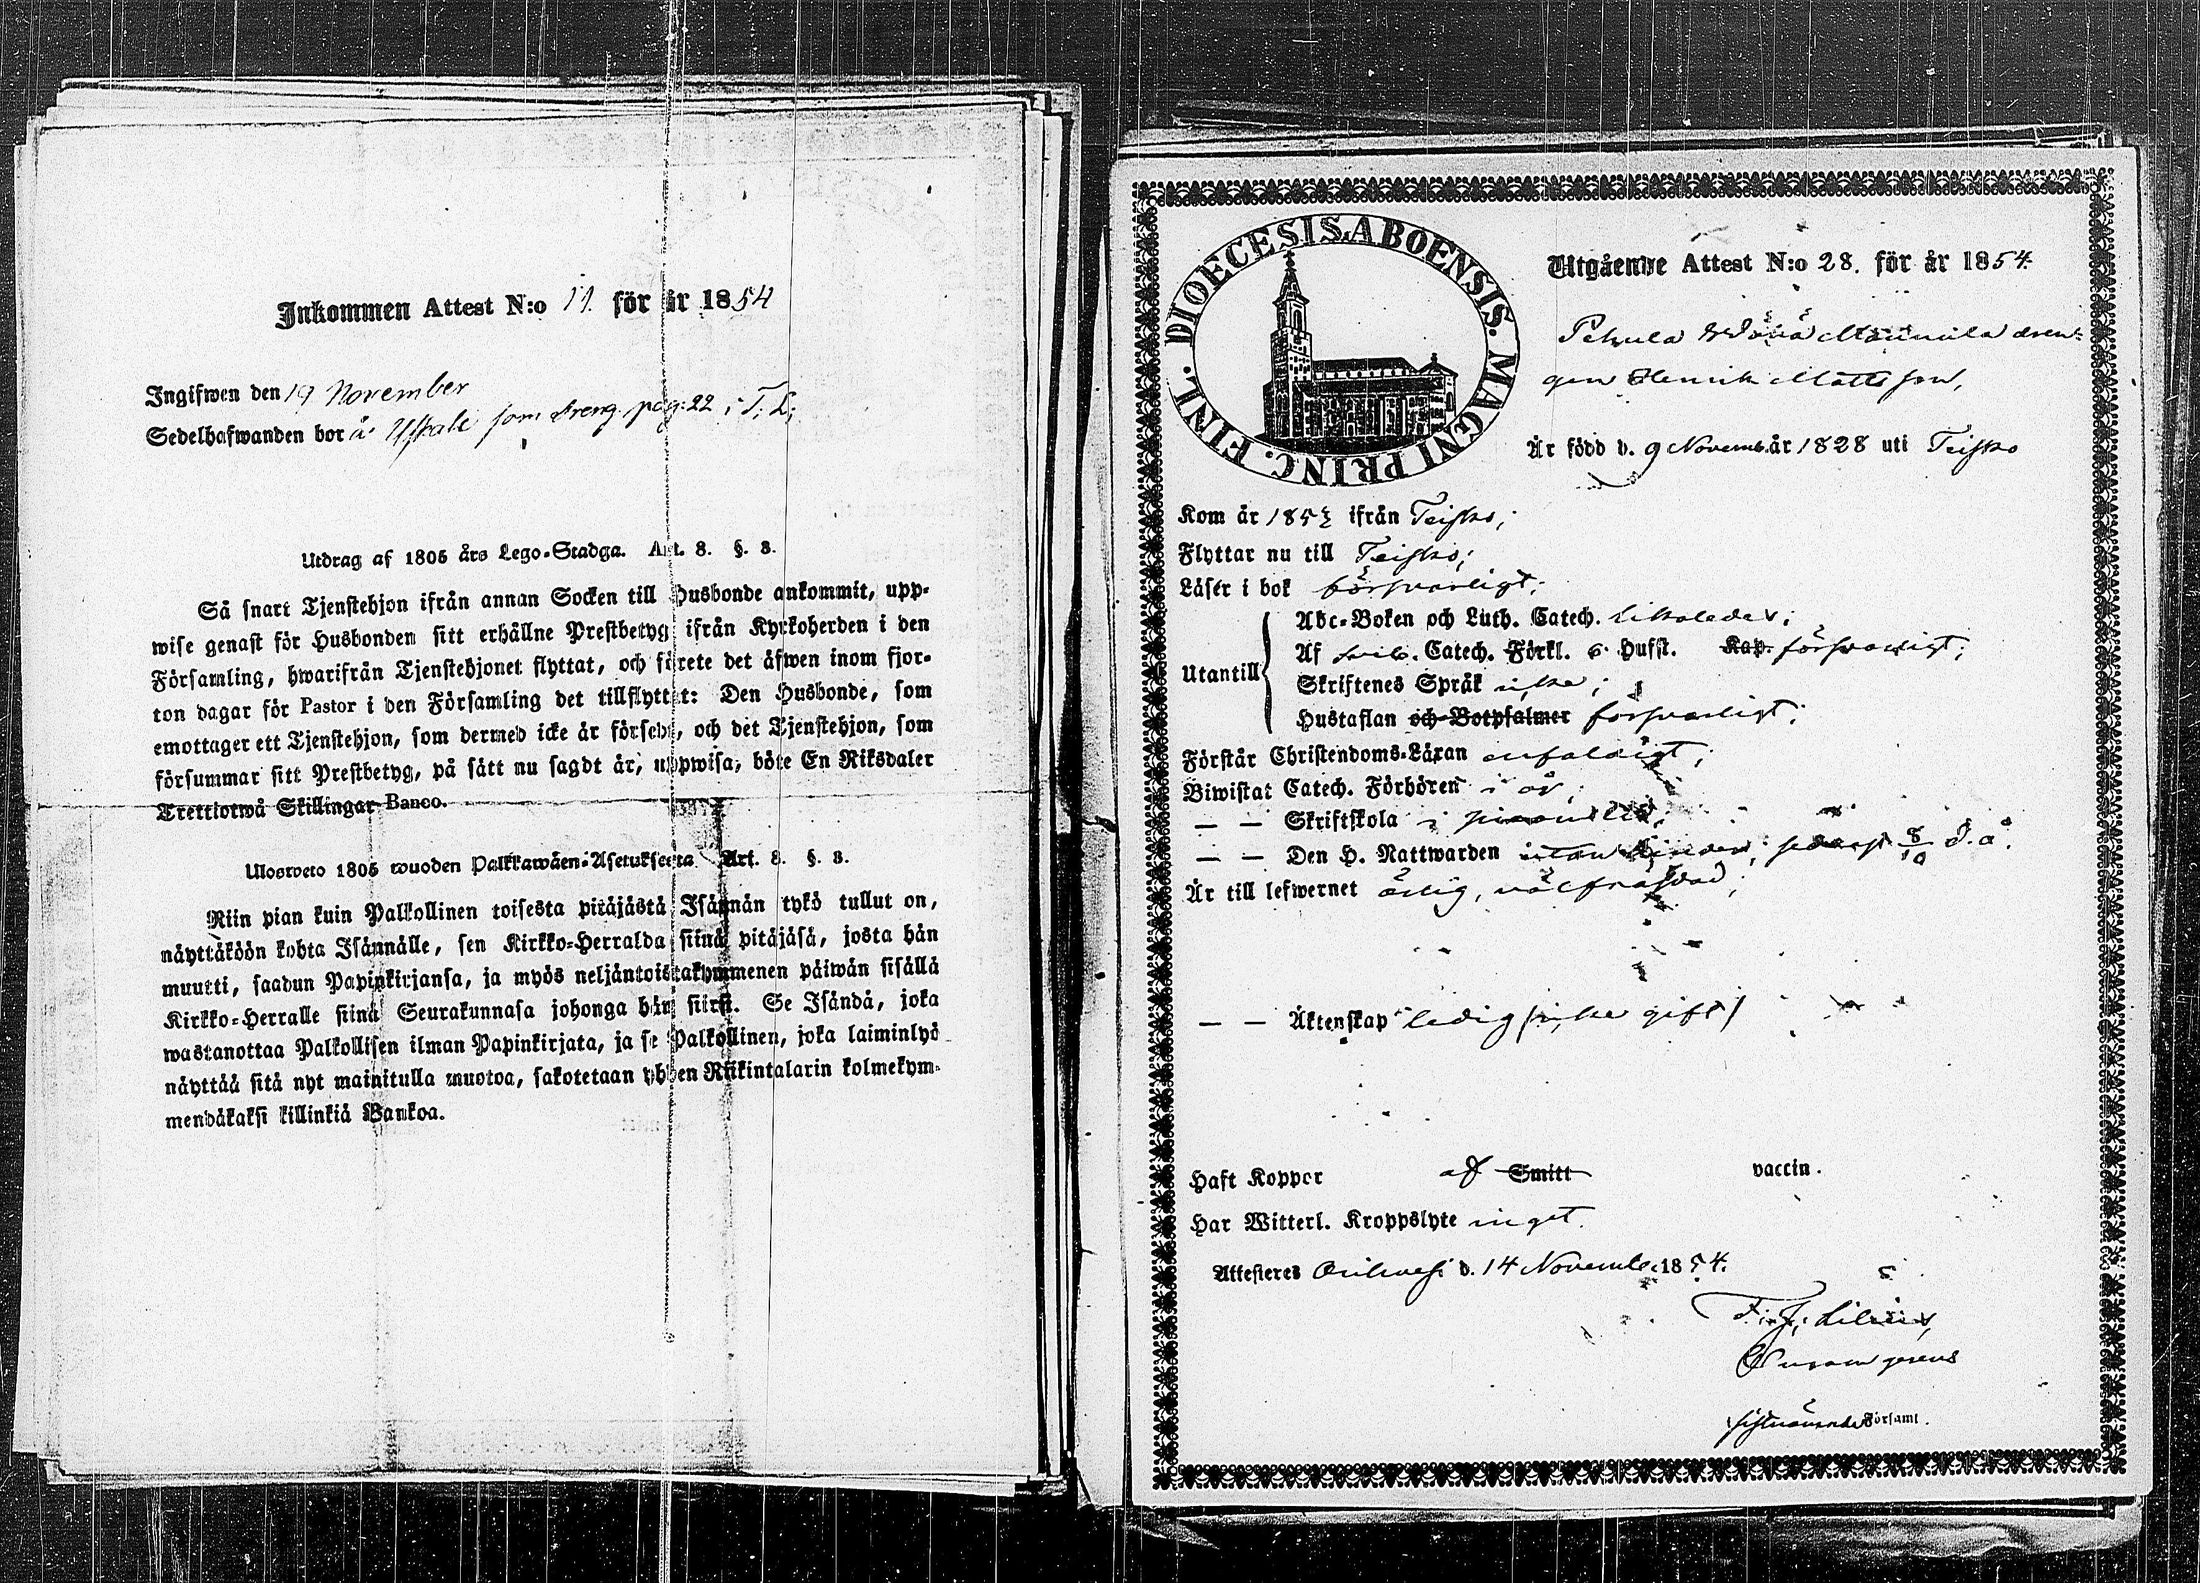 Inkommen Attest N:o 11. för år 1854
Ingifwen den 19 November
Sedelhafwanden bor å Uskali som dreng pag: 22 i T. L;
Utdrag af 1805 års Lego-Stadga. Art. 8. §. 8.
Så snart Tjenstehjon ifrån annan Socken till Husbonde ankommit, upp-
wise genast för Husbonden sitt erhållne Prestbetyg ifrån Kyrkoherden i den
Församling, hwarifrån Tjenstehjonet flyttat, och förete det äfwen inom fjor-
ton dagar för Pastor i den Församling det tillflyttat: Den Husbonde, som
emottager ett Tjenstehjon, som dermed icke är försedt, och det Tjenstehjon, som
försummar sitt Prestbetyg, på sätt nu sagdt är, uppwisa, böte En Riksdaler
Trettiotwå Skillingar Banco.
Ulosweto 1805 wuoden Palkkawäen-Asetuksesta Art. 8. §. 8.
Niin pian kuin Palkollinen toisesta pitäjästä Isännän tykö tullut on,
näyttäköön kohta Isännälle, sen Kirkko-Herralda siinä pitäjäsä, josta hän
muutti, saadun Papinkirjansa, ja myös neljäntoistakymmenen päiwän sisällä
Kirkko-Herralle siinä Seurakunnasa johonga hän siirsi. Se Isändä, joka
wastanottaa Palkollisen ilman Papinkirjata, ja se Palkollinen, joka laiminlyö
näyttää sitä nyt mainitulla muotoa, sakotetaan yhden Riikintalarin kolmekym-
mendäkaksi killinkiä Bankoa.
DIOECESIS. ABOENSIS. MAGNI PRINC. FINL.
Utgående Attest N:o 28. för år 1854.
Pehula Wähä Mannila dren-
gen Henrik Mattsson,
Är född d. 9 Novemb. år 1828 uti Teisko
Kom år 185 ifrån Teisko;
Flyttar nu till Teisko;
Läser i bok försvarligt;
Utantill
Abc-Boken och Luth. Catech. likaledes;
Af Catech. Förkl. o. Hufst. Kap. försvarligt;
Skriftenes Språk icke;
Hustaflan och Botpsalmer försvarligt;
Förstår Christendoms-Läran enfaldigt;
Biwistat Catech. Förhören i år;
— — Skriftskola i
— — Den H. Nattwarden utan hinder, senast 8/10 d. å.
Är till lefwernet ärlig, välfräjdad;
— — Äktenskap ledig (icke gift)
Haft Koppor af Smitt vaccin.
Har Witterl. Kroppslyte inget.
Attesteres Orihvesi d. 14 Novemb. 1854.
F. J. Lilius,
Curam gerens
sistnämnda Församl.